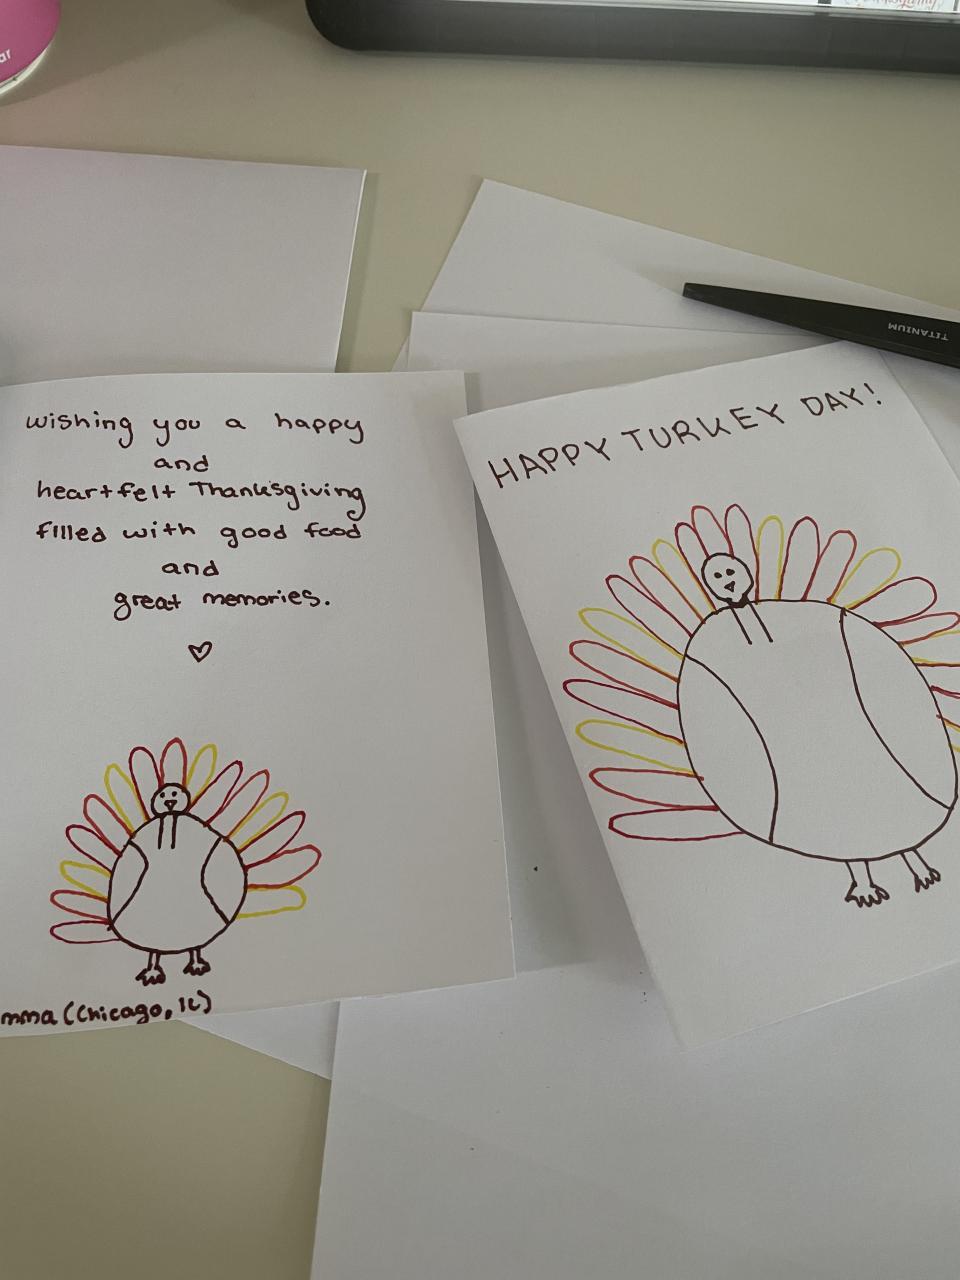 ar
wishing you a happy
and
heartfelt Thanksgiving
filled with good food
and
great memories.
♡
mma (Chicago, IL)
HAPPY TURKEY DAY!
TITANIUM